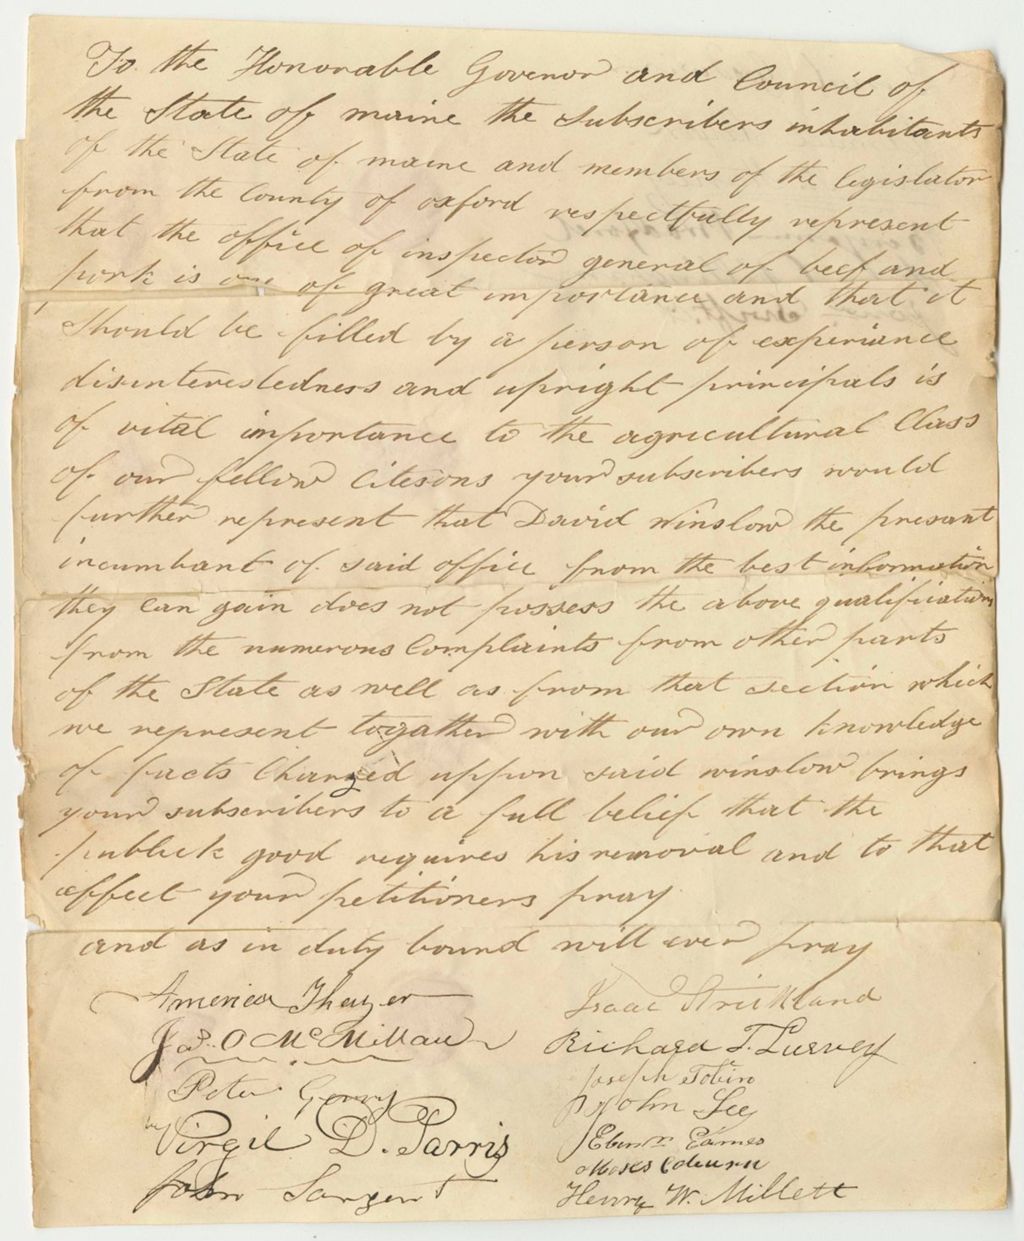 To the Honorable Govenor and Council of
the State of maine the subscribers inhabitants
of the State of maine and members of the legislator
from the County of oxford respectfully represent
that the office of inspector general of beef and
pork is one of great importance and that it
should be filled by a person of experiance
disinterestedness and upright principals is
of vital importance to the agricultural Class
of our fellow Citesons your subscribers would
further represent that David Winslow the presant
incumbant of said office from the best information
they can gain does not possess the above qualifications
from the numerous Complaints from other parts
of the State as well as from that section which
we represent togather with our own knowledge
of facts Charged uppon said winslow brings
your subscribers to a full belief that the
publick good requires his removal and to that
effect your petitioners pray
and as in duty bound will ever pray
America Thayer
Jas. O McMillan
Peter Gerry
Virgil D. Parris
John Sargent
Isaac Strickland
Richard T. Lurvey
Joseph Tobin
John Lee
Ebenr. Eames
Moses Coburn
Henry W. Millett